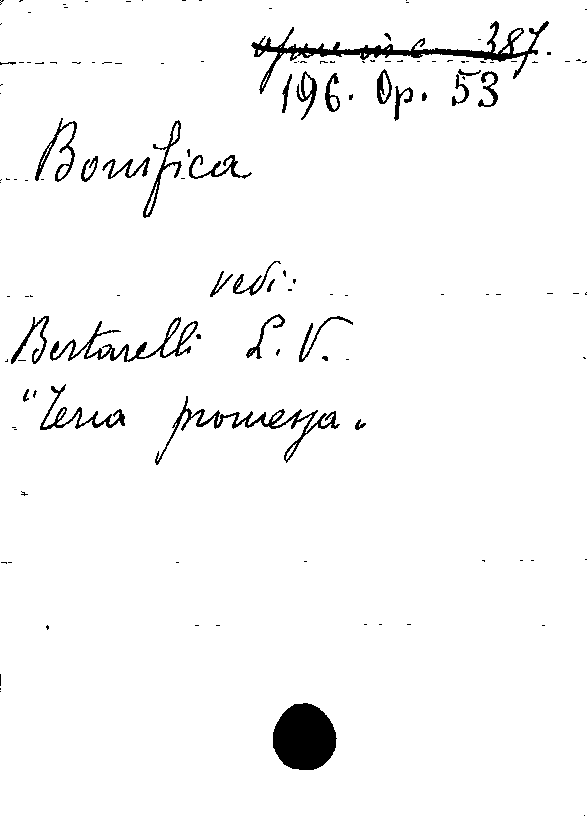 opusc. misc. 387.
196. Op. 53
Bonifica
vedi:
Bertarelli L. V.
"Terra promessa"